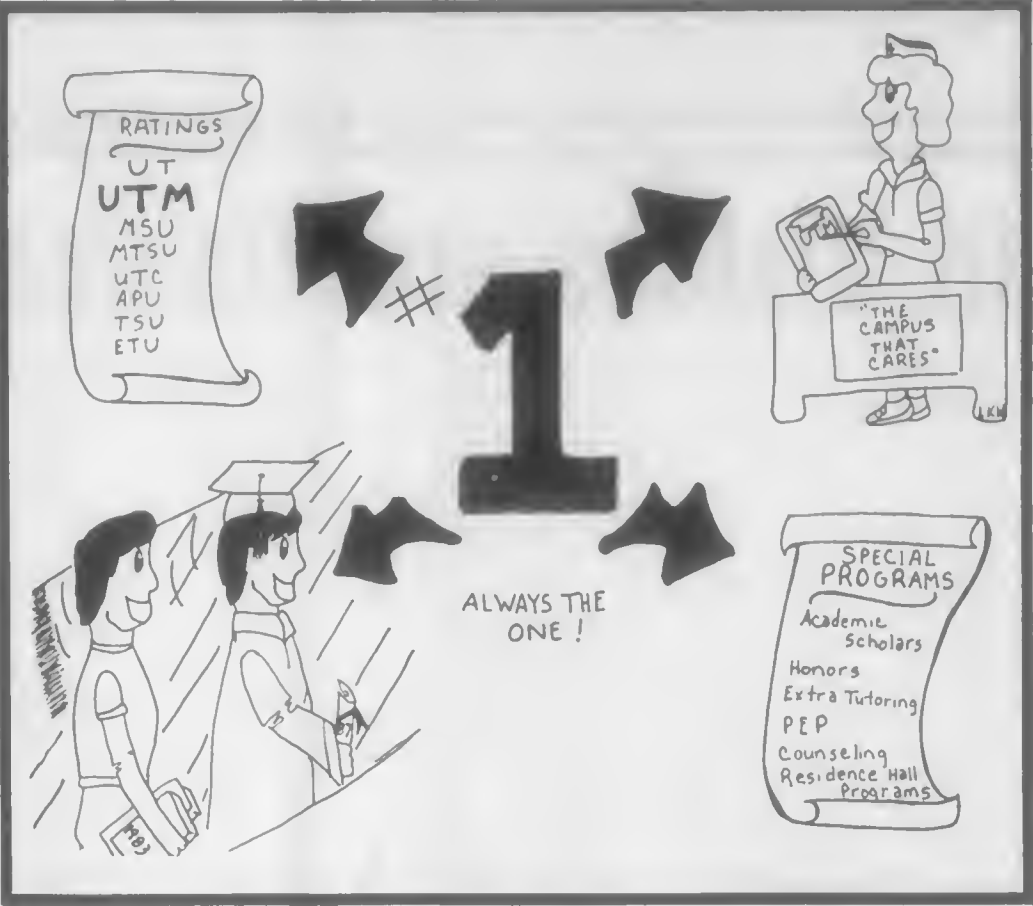 RATINGS
UT
UTM
MSU
MTSU
UTC
APU
TSU
ETU
# 1
ALWAYS THE
ONE!
"THE
CAMPUS
THAT
CARES"
LKH
SPECIAL
PROGRAMS
Academic
Scholars
Honors
Extra Tutoring
PEP
Counseling
Residence Hall
Programs
1983